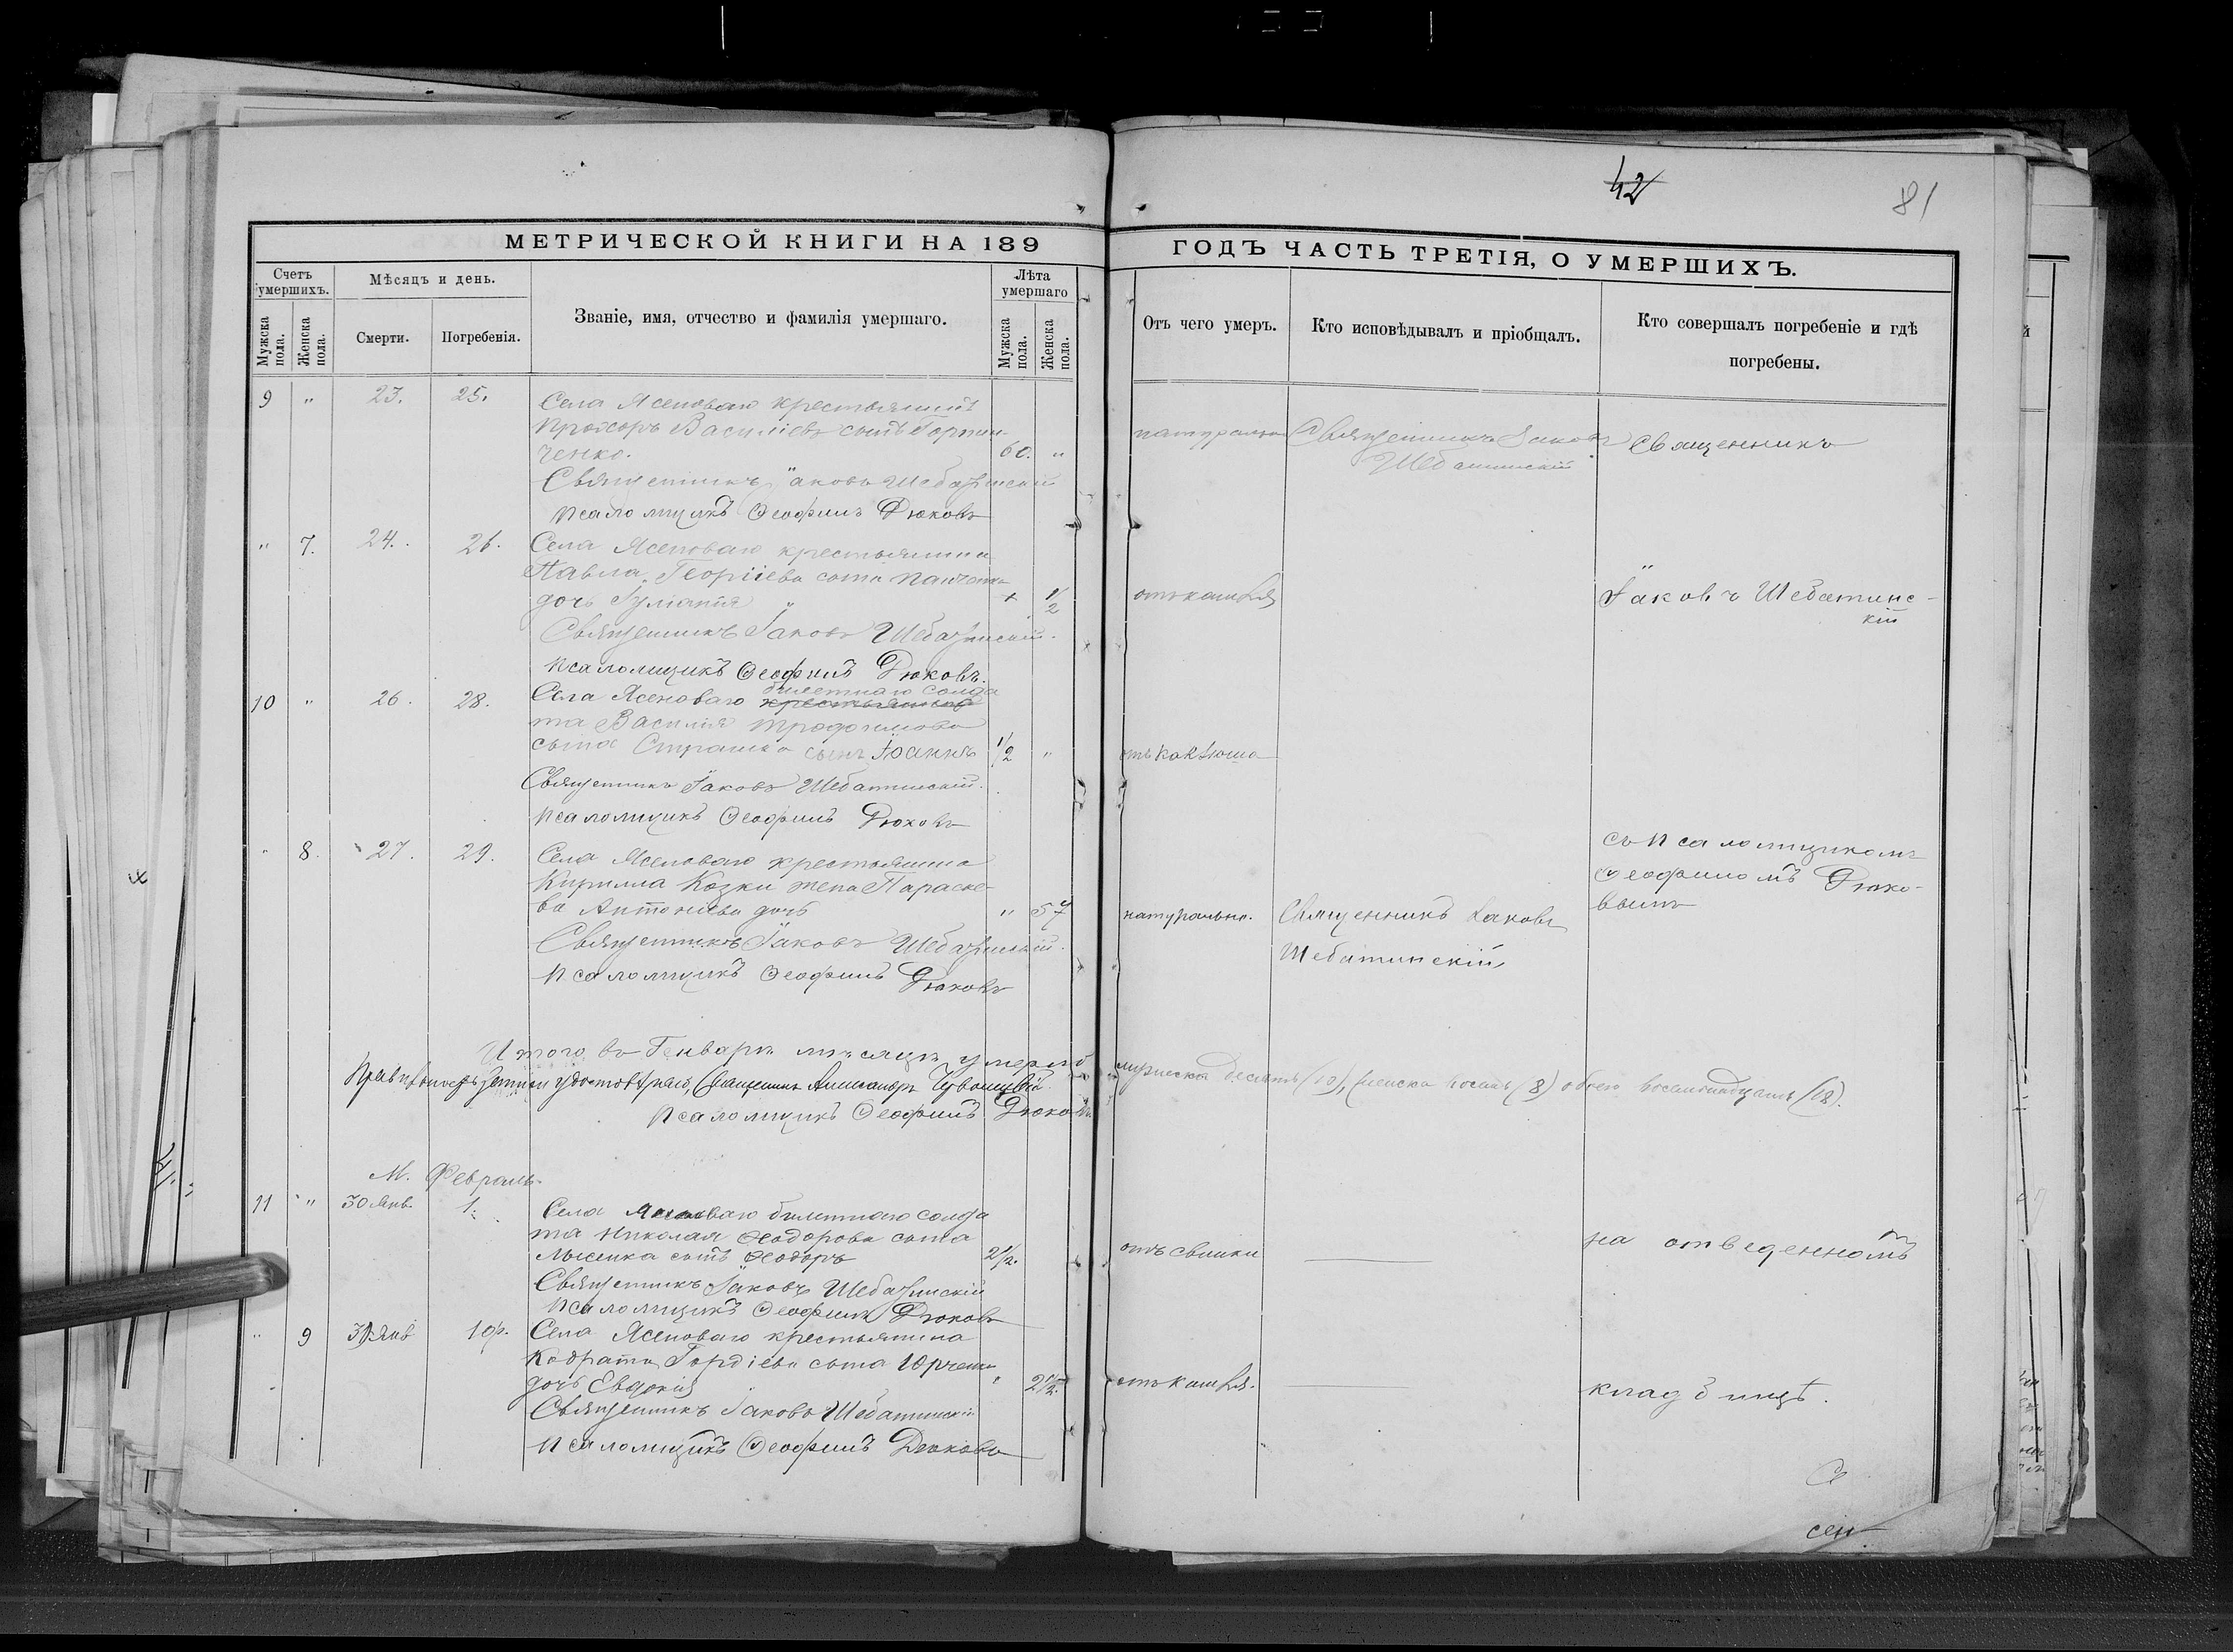 42
81
МЕТРИЧЕСКОЙ КНИГИ НА 189
ГОДЪ ЧАСТЬ ТРЕТІЯ, О УМЕРШИХЪ.
Счетъ умершихъ.
Мѣсяцъ и день.
Званіе, имя, отчество и фамилія умершаго.
Лѣта умершаго
Мужска пола.
Женска пола.
Смерти.
Погребенія.
Мужска пола.
Женска пола.
Отъ чего умеръ.
Кто исповѣдывалъ и пріобщалъ.
Кто совершалъ погребеніе и гдѣ
погребены.
9 " 23. 25. Села Ясеноваго крестьянинъ
Прохоръ Василіевъ сынъ
ченко. 60. "
натурально Священникъ Іаковъ
Шебатинскій
Священникъ
Священникъ Іаковъ Шебатинскій
Псаломщикъ Ѳеофилъ Дюковъ
" 7. 24. 26. Села Ясеноваго крестьянина
Павла Георгіева сына Панченка
дочь Іуліанія 1/2
отъ кашля
Іаковъ Шебатинс-
кій
Священникъ Іаковъ Шебатинскій.
Псаломщикъ Ѳеофилъ Дюковъ.
10 " 26. 28. Села Ясеноваго крестьянина билетнаго солда
та Василія Трофимова
сына Страшка сынъ Іоаннъ 1/2 "
отъ коклюша
Священникъ Іаковъ Шебатинскій.
Псаломщикъ Ѳеофилъ Дюковъ
" 8. 27. 29. Села Ясеноваго крестьянина
Кирилла Козки жена Параске-
ва Антоніева дочь " 57
натурально. Священникъ Іаковъ
Шебатинскій
съ Псаломщикомъ
Ѳеофиломъ Дюко-
вымъ
Священникъ Іаковъ Шебатинскій.
Псаломщикъ Ѳеофилъ Дюковъ
Итого въ Генварѣ мѣсяцѣ умерло
мужеска десять (10), женска восемь (8) обоего восемнадцать (18).
записи удостовѣряю, Священникъ Александръ
Псаломщикъ Ѳеофилъ Дюковъ
М. Февраль.
11 " 30 Янв. 1. Села Ясеноваго билетнаго солда
та Николая Ѳеодорова сына
Лысенка сынъ Ѳеодоръ 2 1/2.
отъ свинки
на отведенномъ
Священникъ Іаковъ Шебатинскій
Псаломщикъ Ѳеофилъ Дюковъ
" 9 Янв. 1 Села Ясеноваго крестьянина
Кодрата Гордіева сына Юрченка
дочь Евдокія " 2 1/2.
отъ кашля.
кладбищѣ.
Священникъ Іаковъ Шебатинскій
Псаломщикъ Ѳеофилъ Дюковъ